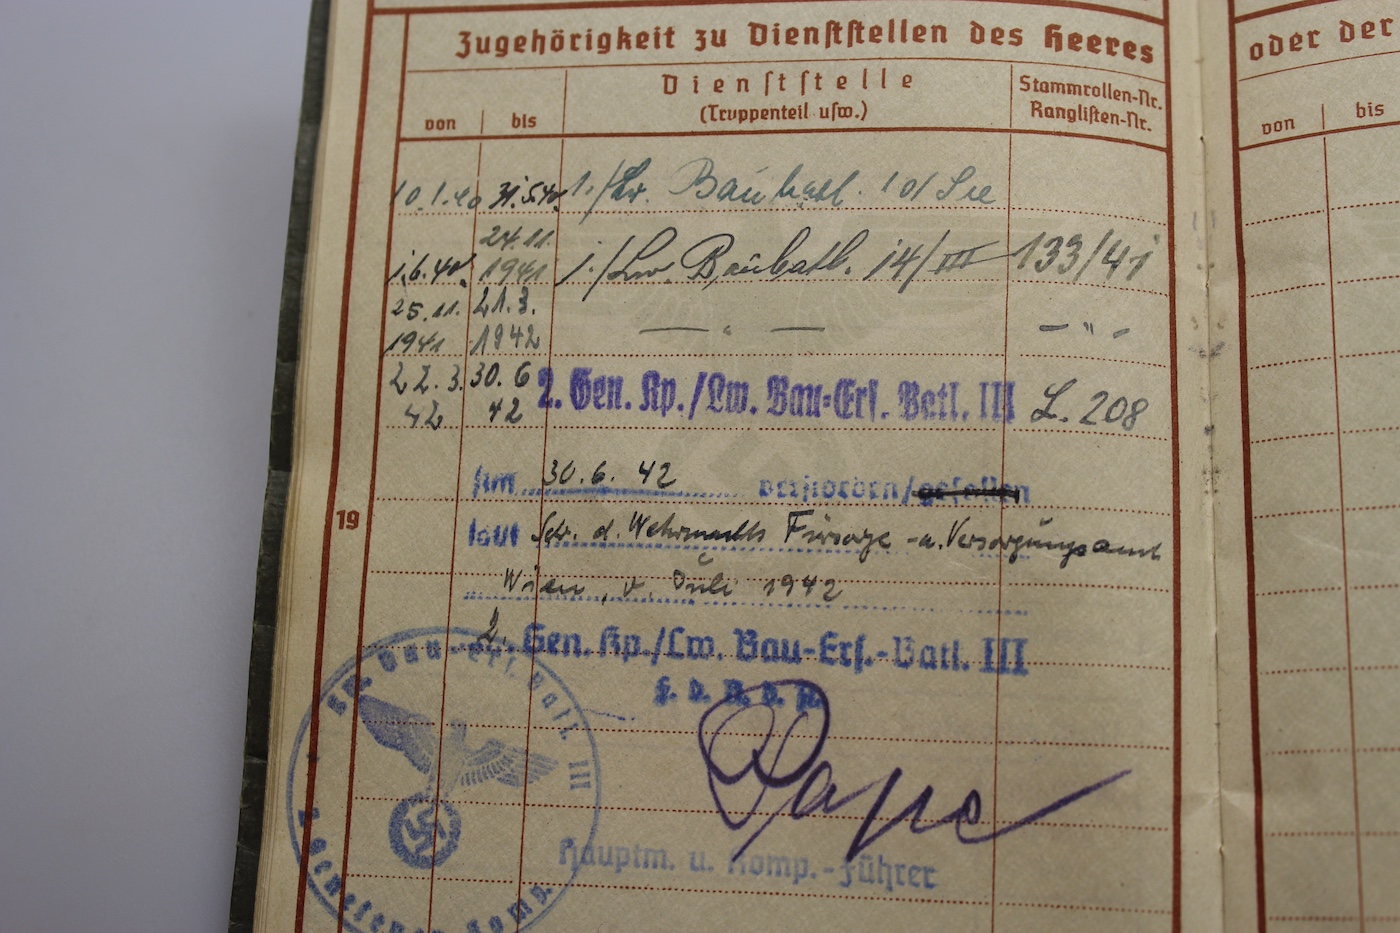 Zugehörigkeit zu Dienststellen des Heeres
oder der
von
bis
Dienststelle
(Truppenteil usw.)
Stammrollen-Nr.
Ranglisten-Nr.
von
bis
10.1.40 31.5.40 1./Lw. Baubatl. 10/See
1.6.40 24.11.1941 1./Lw. Baubatl. 14/III 133/41
25.11.1941 21.3.1942 — " — – " –
22.3.42 30.6.42 2. Gen. Kp./Lw. Bau-Ers. Batl. III L. 208
19
Am 30.6.42 verstorben/gefallen
laut Schr. d. Wehrmachts Fürsorge -u. Versorgungsamt
Wien, v. Juli 1942
2. Gen. Kp./Lw. Bau-Ers.-Batl. III
Pape
Hauptm. u. Komp.-Führer
Lw. Bau-Ers. Batl. III
2. Genesenen Komp.